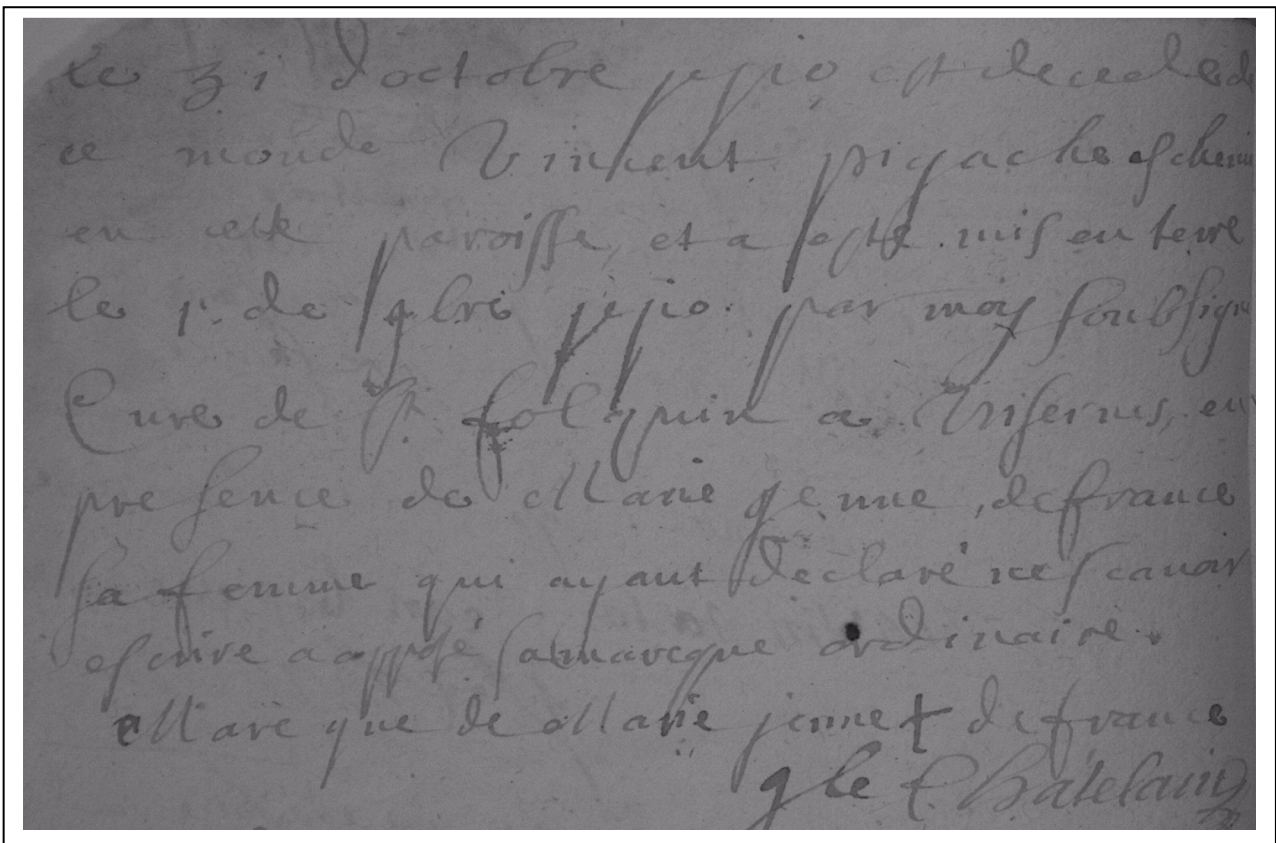 Le 31 doctobre 1710 est decede de
ce monde Vincent pigache eschevin
en cette paroisse, et a esté mis en terre
le 1r. de 9bre 1710. par moy soubsigné
Curé de St. folquin a Insernus, en
presence de Marie jenne, defrance
sa femme qui ayant déclaré ne scavoir
escrire a apposé sa marcque ordinaire.
Marcque de Marie jenne + defrance
g le Chatelain